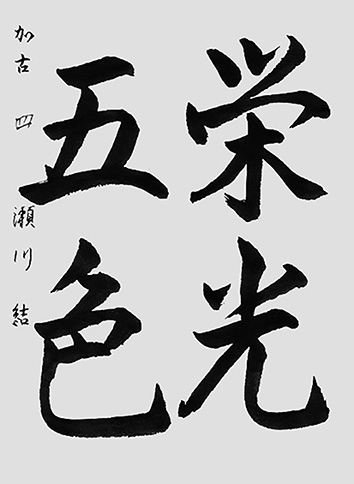 栄光
五色
加古 四 瀬川結